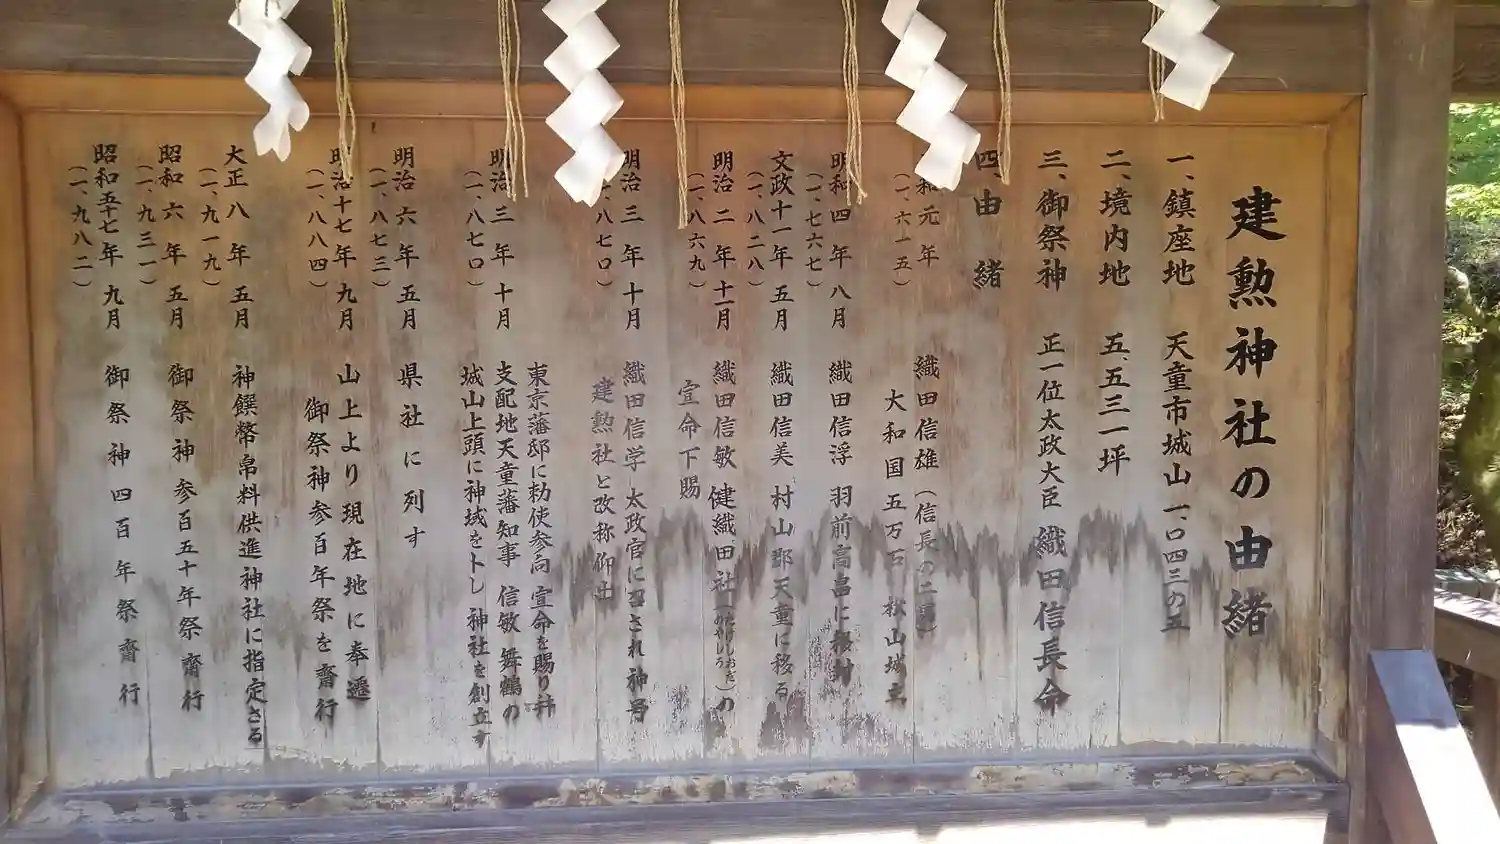 建勲神社の由緒
一、鎮座地 天童市城山一、〇四三の五
二、境内地 五、五三一坪
三、御祭神 正一位太政大臣 織田信長命
四 由緒
和元年 織田信雄(信長の二男)
(一、六一五) 大和国五万石 松山城主
明和四年八月 織田信浮 羽前高畠に移封
(一、七六七)
文政十一年五月 織田信美 村山郡天童に移る
(一、八二八)
明治二年十一月 織田信敏 健織田社(たけしおだのやしろ)の
(一、八六九) 宣命下賜
明治三年十月 織田信学 太政官に召され神号
(一、八七〇) 建勲社と改称仰出
東京藩邸に勅使参向 宣命を賜り
明治三年十月 支配地天童藩知事 信敏 舞鶴の
(一、八七〇) 城山上頭に神域を卜し 神社を創立す
明治六年五月 県社に列す
(一、八七三)
明治十七年九月 山上より現在地に奉遷
(一、八八四) 御祭神参百年祭を齋行
大正八年五月 神饌幣帛料供進神社に指定さる
(一、九一九)
昭和六年五月 御祭神参百五十年祭齋行
(一、九三一)
昭和五十七年九月 御祭神四百年祭齋行
(一、九八二)